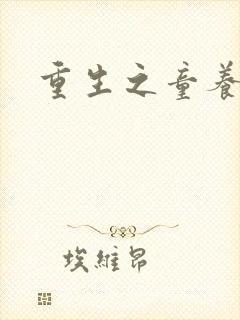 重生之童養
埃維昂